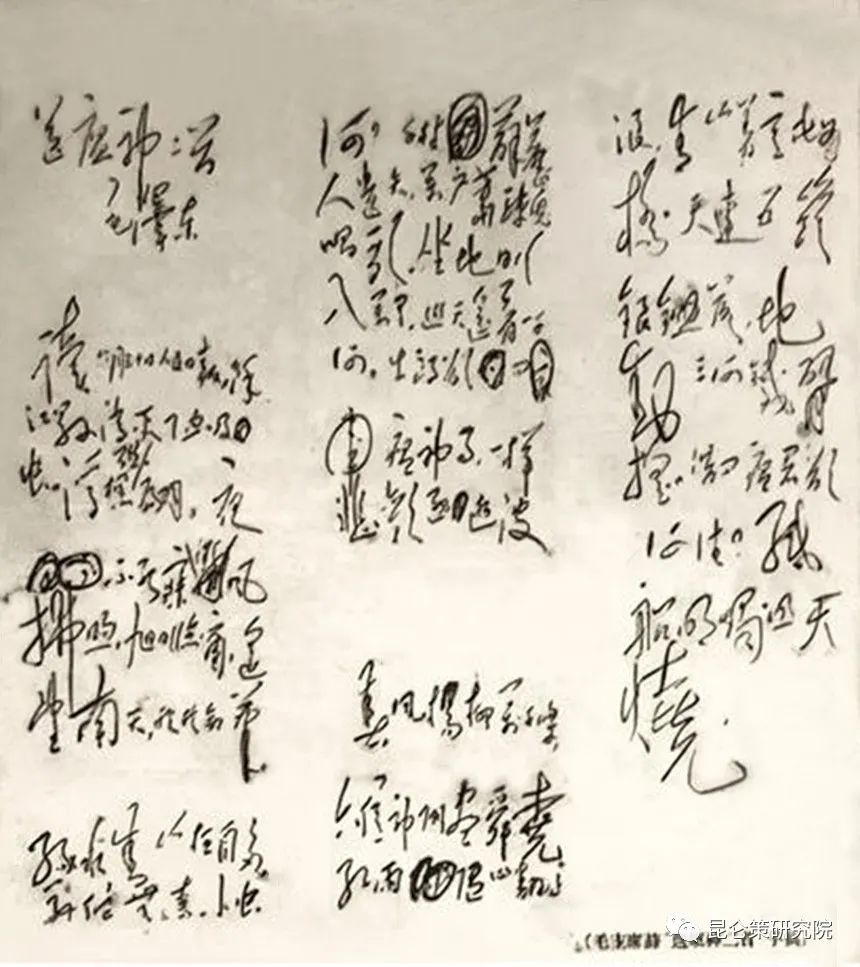 送瘟神二首
毛澤东
读人民日報，余
江县消灭了血吸
虫，浮想联翩，夜
不能寐，微风
拂煦，旭日临窗，遥
望南天，欣然命筆
绿水青山枉自多
華佗無奈小虫
何，千村薜荔
人遗矢，萬户萧疏鬼
唱歌，坐地日行
八万里，巡天遥看一千
河，牛郎欲问
瘟神事，一样
悲欢逐逝波
春风楊柳万千条
六億神州盡舜堯
红雨随心翻作
浪，青山着意化为
橋，天連五岭
银鋤落，地
動三河铁臂
摇。借问瘟君欲
何往？纸
船明燭照天
燒
昆仑策研究院